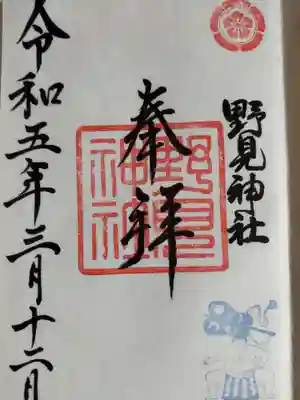 野見神社
奉拝
野見神社
令和五年三月十二日